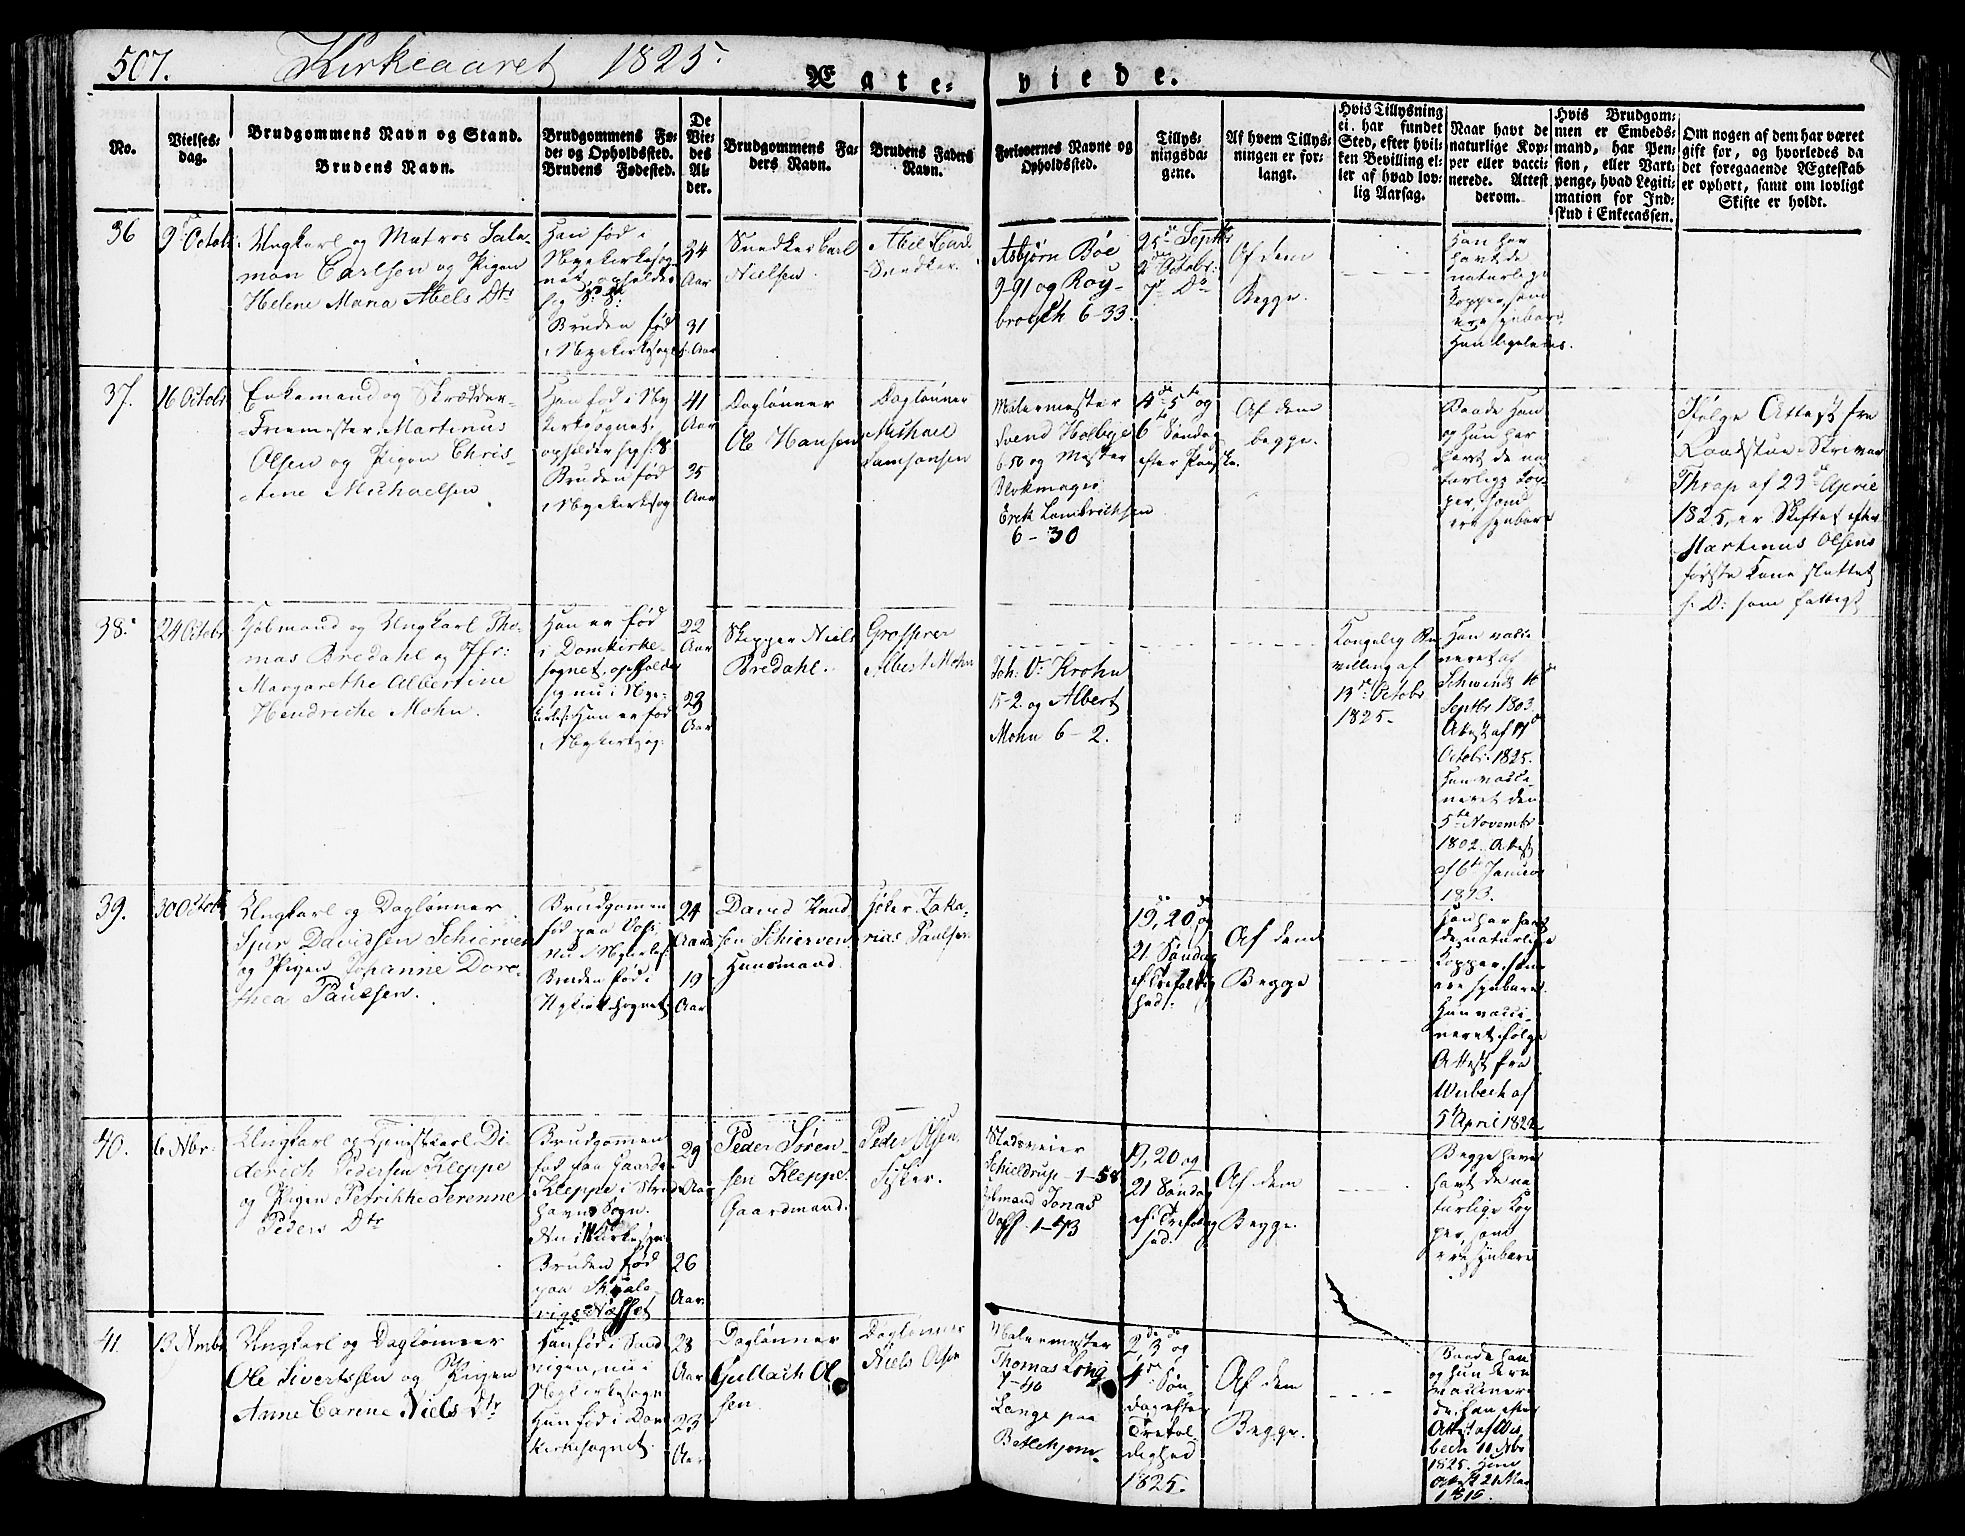 507.
Kirkeaaret 1825.
Ægte-
viede.
No.
Vielses-
dag.
Brudgommens Navn og Stand.
Brudens Navn.
Brudgommens Fø-
de- og Opholdssted.
Brudens Fødested.
De
Vie-
des
Al-
der.
Brudgommens Fa-
ders Navn.
Brudens Faders
Navn.
Forlovernes Navne og
Opholdssted.
Tillys-
ningsda-
gene.
Af hvem Tillys-
ningen er for-
langt.
Hvis Tillysning
ei har fundet
Sted, efter hvil-
ken Bevilling el-
ler af hvad lov-
lig Aarsag.
Naar havt de
naturlige Kop-
per eller vacci-
nerede. Attest
derom.
Hvis Brudgom-
men er Embeds-
mand, har Pen-
sion, eller Vart-
penge, hvad Legiti-
mation for Ind-
skud i Enkecassen.
Om nogen af dem har været
gift før, og hvorledes da
det foregaaende Ægteskab
er ophørt, samt om lovligt
Skifte er holdt.
36
9de Octob:
Ungkarl og Matros Salo-
mon Carlsen og Pigen
Helene Maria Abels Dtr
Han fød i
Nyekirkesog-
net, opholder
sig
Bruden fød
i Nyekirkesogn
34
Aar
31
Aar
Snedker Carl
Nielsen.
Abel Carl
Snedker.
Asbjørn Bøe
9-91 og Roy-
6-33.
25de Septbr
2de Octobr:
7de Do
Af dem
Begge.
Han har
havt de
naturlige
Kopper, som
ere synbare
Hun ligeledes.
37.
16 Octobr
Enkemand og Skrædder-
Friemester Martinus
Olsen og Pigen Chris-
tine Michaelsen
Han fød i Ny
kirkesognet,
opholder sig
Bruden fød
i Nyekirkesog
41
Aar
35
Aar
Daglønner
Ole Hansen
Daglønner
Michael
Samsonsen
Malermester
Svend Holbye
6-50 og Mester
Blokmager
Erik Lambrichsen
6-30
4de 5te og
6te Søndag
efter Paaske.
Af dem
begge.
Baade han
og hun har
havt de na-
turlige Kop-
per, som
ere synbare
Følge Attest fra
Raadstue-Skriver
Thrap af 23de April
1825, er Skiftet efter
Martinus Olsens
første Kone sluttet
s. D: som fattigt
38.
24 Octobr
Kjøbmand og Ungkarl Tho-
mas Bredahl og Jfr:
Margarethe Albertine
Hendriche Mohn.
Han er fød
i Domkirke-
sognet, opholder
sig nu i Nye-
kirkes: Hun er fød
i Nykirkesog:
22
Aar
23
Aar
Skipper Niels
Bredahl.
Grosserer
Albert Mohn
Joh: D: Krohn
15-2. og Albert
Mohn 6-2.
Kongelig Be-
villing af
13de Octobr
1825.
Han vacci-
neret af
Schwindt
Septbr 1803.
Attest af
Octobr: 1825.
Hun vacci-
neret den
5te Novembr
1802. Attest
af 6te Januar
1823.
39.
30 Octobr
Ungkarl og Daglønner
Sjur Davidsen Schierven
og Pigen Johanne Doro-
thea Paulsen.
Brudgomen
fød paa Vos,
nu i Nyekirkes:
Bruden fød i
Nykirkesognet
24
Aar
19
Aar
David Knud
sen Schierven
Huusmand
Føler Zaka-
rias Paulsen
19, 20 og
21 Søndag
ef: Trefoldig
hed.
Af dem
Begge
Han har havt
de naturlige
Kopper, som
ere synbare.
Hun vacci-
neret ifølge
Attest fra
Wesbech af
5 April 1822
40.
6 Nbr:
Ungkarl og Tjenstkarl Di-
derich Pedersen Kleppe
og Pigen Petrikke Serenne
Peders Dtr
Brudgomen
fød paa Gaarden
Kleppe i Strud
havns Sogn.
Nu i Nkirkesogn
Bruden fød
paa Kvale-
vigsnæsset
29
Aar
26
Aar
Peder Søren-
sen Kleppe.
Gaardmand.
Peder Olsen
Fisker.
Stadsveier
Schieldrup 1-58
Jonas
Voss. 1-43
19, 20 og
21 Søndag
ef: Trefoldig
hed.
Af dem
Begge.
Begge have
havt de na-
turlige Kop
per, som
ere synbare
41.
13 Nvmbr
Ungkarl og Daglønner
Ole Sivertsen og Pigen
Anne Carine Niels Dtr
Han fød i Sand
vigen, nu i
Nyekirkesogn
Hun fød i Dom
kirkesognet.
28
Aar
23
Aar
Dagløner
Gullach Ol
sen.
Dagløner
Niels Olsen
Malermester
Thomas Long
7-40
Lange paa
Betlehjem.
2, 3 og
4de Søn-
dag efter
Trefol-
dighed
1825.
Af dem
Begge.
Baade han
og hun ere
vaccinere
de, han efter
Attest af Wis
bech 10 Nbr
1825. Hun
Attest 21 Mai
1815.